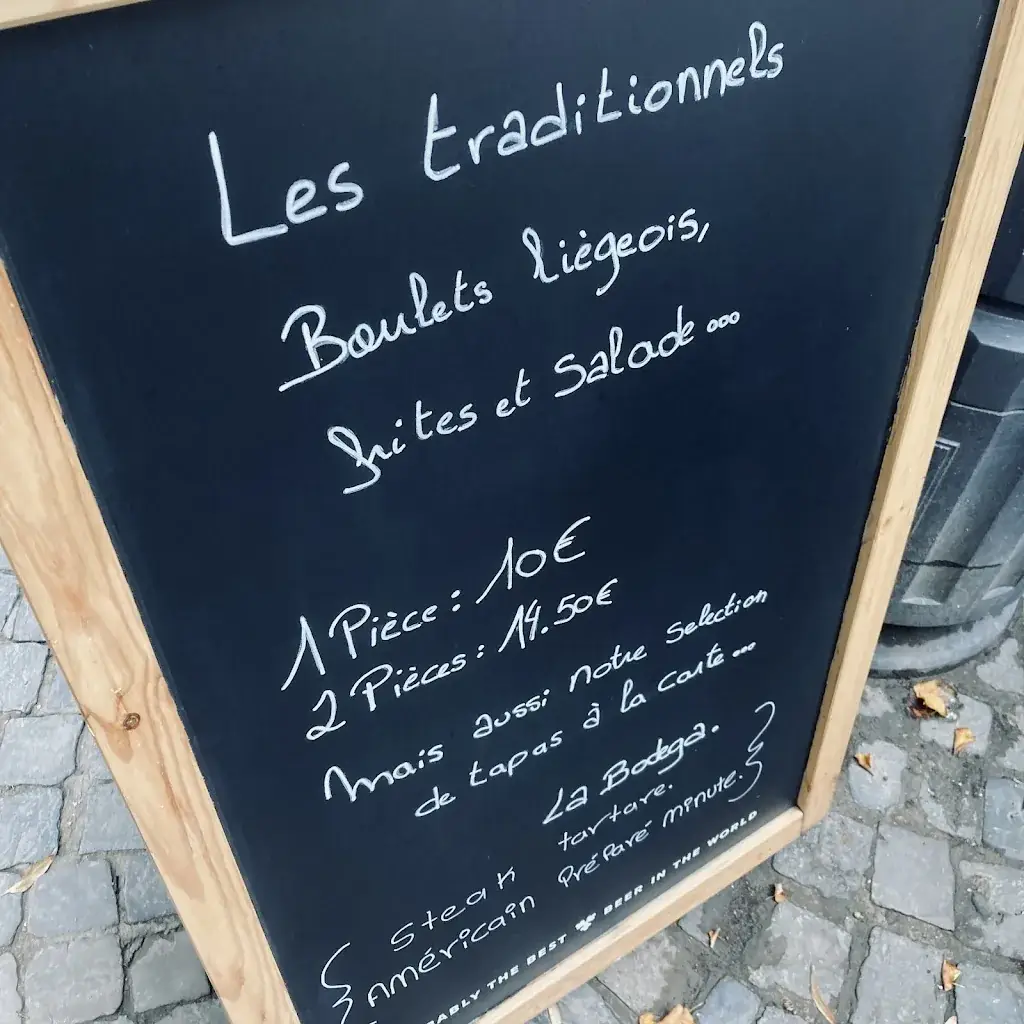 Les traditionnels
Boulets liégeois,
frites et Salade...
1 Pièce : 10€
2 Pièces : 14.50€
Mais aussi notre selection
de tapas à la carte...
La Bodega.
Steak tartare.
Américain Préparé minute.
ABLY THE BEST BEER IN THE WORLD